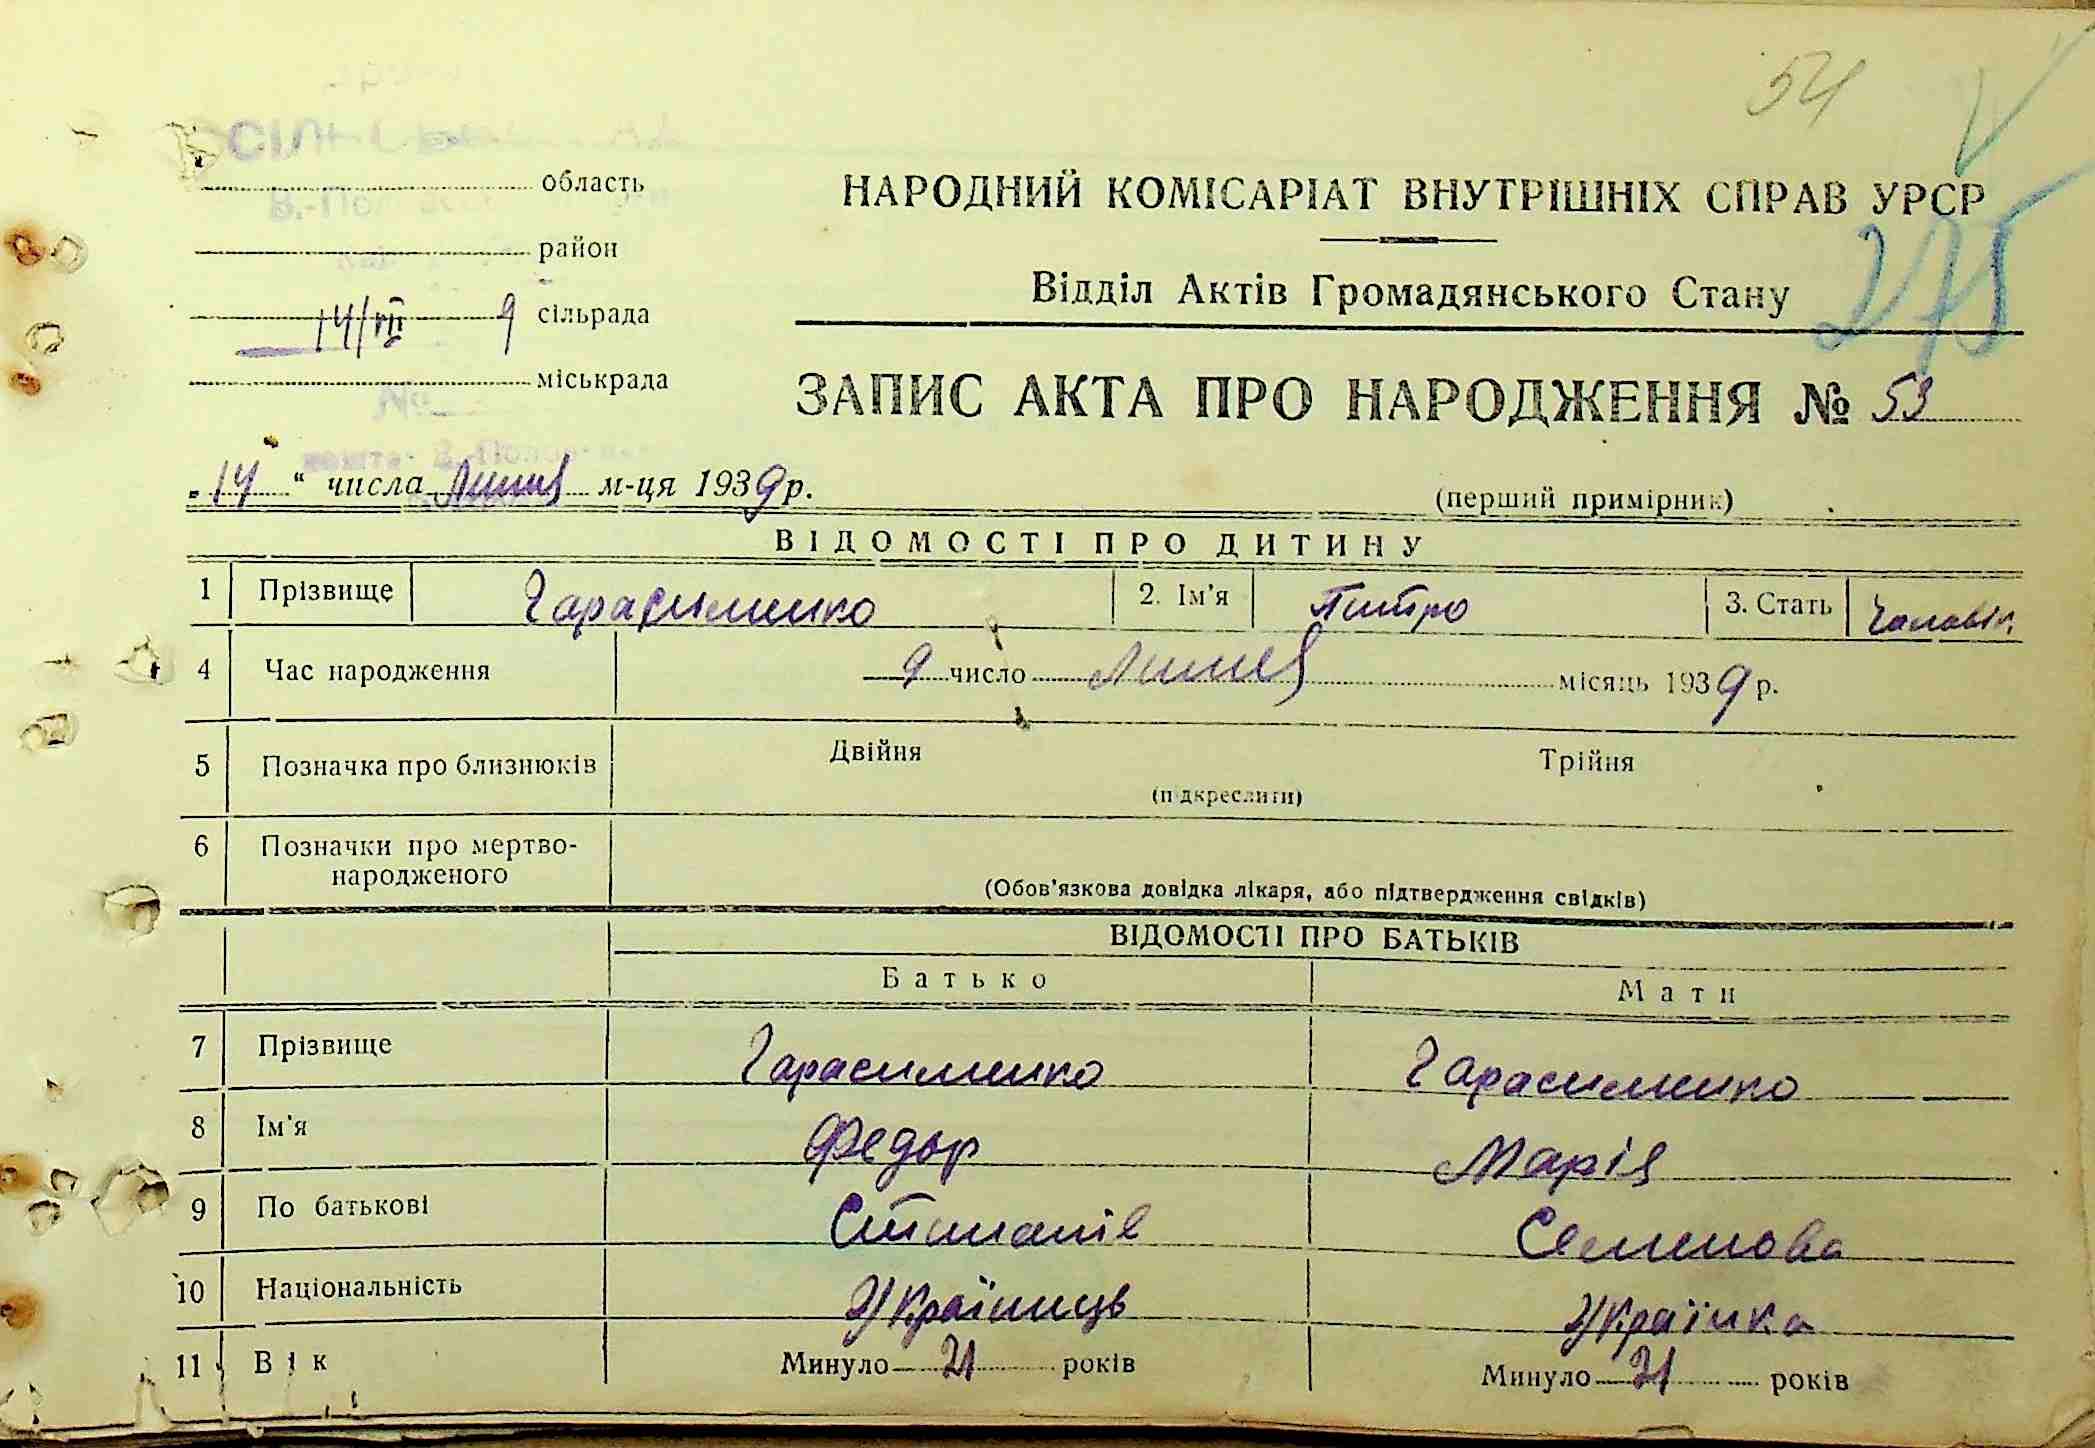 54
область
НАРОДНИЙ КОМІСАРІАТ ВНУТРІШНІХ СПРАВ УРСР
район
275
Відділ Актів Громадянського Стану
14/VII 9 сільрада
міськрада
ЗАПИС АКТА ПРО НАРОДЖЕННЯ № 53
„14“ числа Липня м-ця 1939 р.
(перший примірник)
ВІДОМОСТІ ПРО ДИТИНУ
1 Прізвище Гарасименко 2. Ім'я Питро 3. Стать Чоловіч.
4 Час народження 9 число Липня місяць 1939 р.
5 Позначка про близнюків Двійня Трійня
(підкреслити)
6 Позначки про мертво-
народженого
(Обов'язкова довідка лікаря, або підтвердження свідків)
ВІДОМОСТІ ПРО БАТЬКІВ
Батько Мати
7 Прізвище Гарасименко Гарасименко
8 Ім'я Федор Марія
9 По батькові Степанів Семенова
10 Національність Українець Українка
11 Вік Минуло 21 років Минуло 21 років